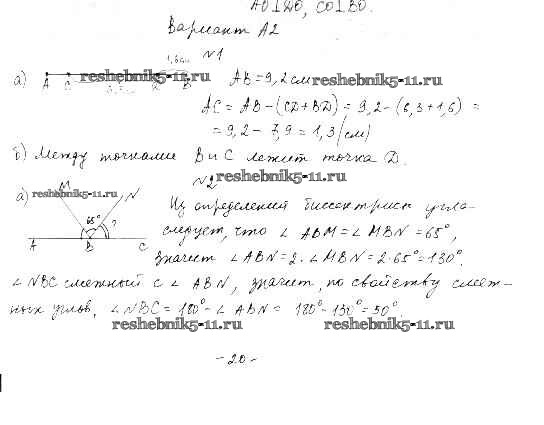 AO⊥WO, CO⊥BO.
Вариант А2
№1
1,6см
а) A C D B AB = 9,2 см
reshebnik5-11.ru
reshebnik5-11.ru
AC = AB - (CD + BD) = 9,2 - (6,3 + 1,6) =
= 9,2 - 7,9 = 1,3 (см)
б) Между точками B и C лежит точка D.
№2
reshebnik5-11.ru
а) reshebnik5-11.ru
M N
65° ?
A B C
Из определений биссектрисы угла
следует, что ∠ABM = ∠MBN = 65°,
значит ∠ABN = 2·∠MBN = 2·65° = 130°.
∠NBC смежный с ∠ABN, значит, по свойству смеж-
ных углов, ∠NBC = 180° - ∠ABN = 180° - 130° = 50°.
reshebnik5-11.ru
reshebnik5-11.ru
- 20 -